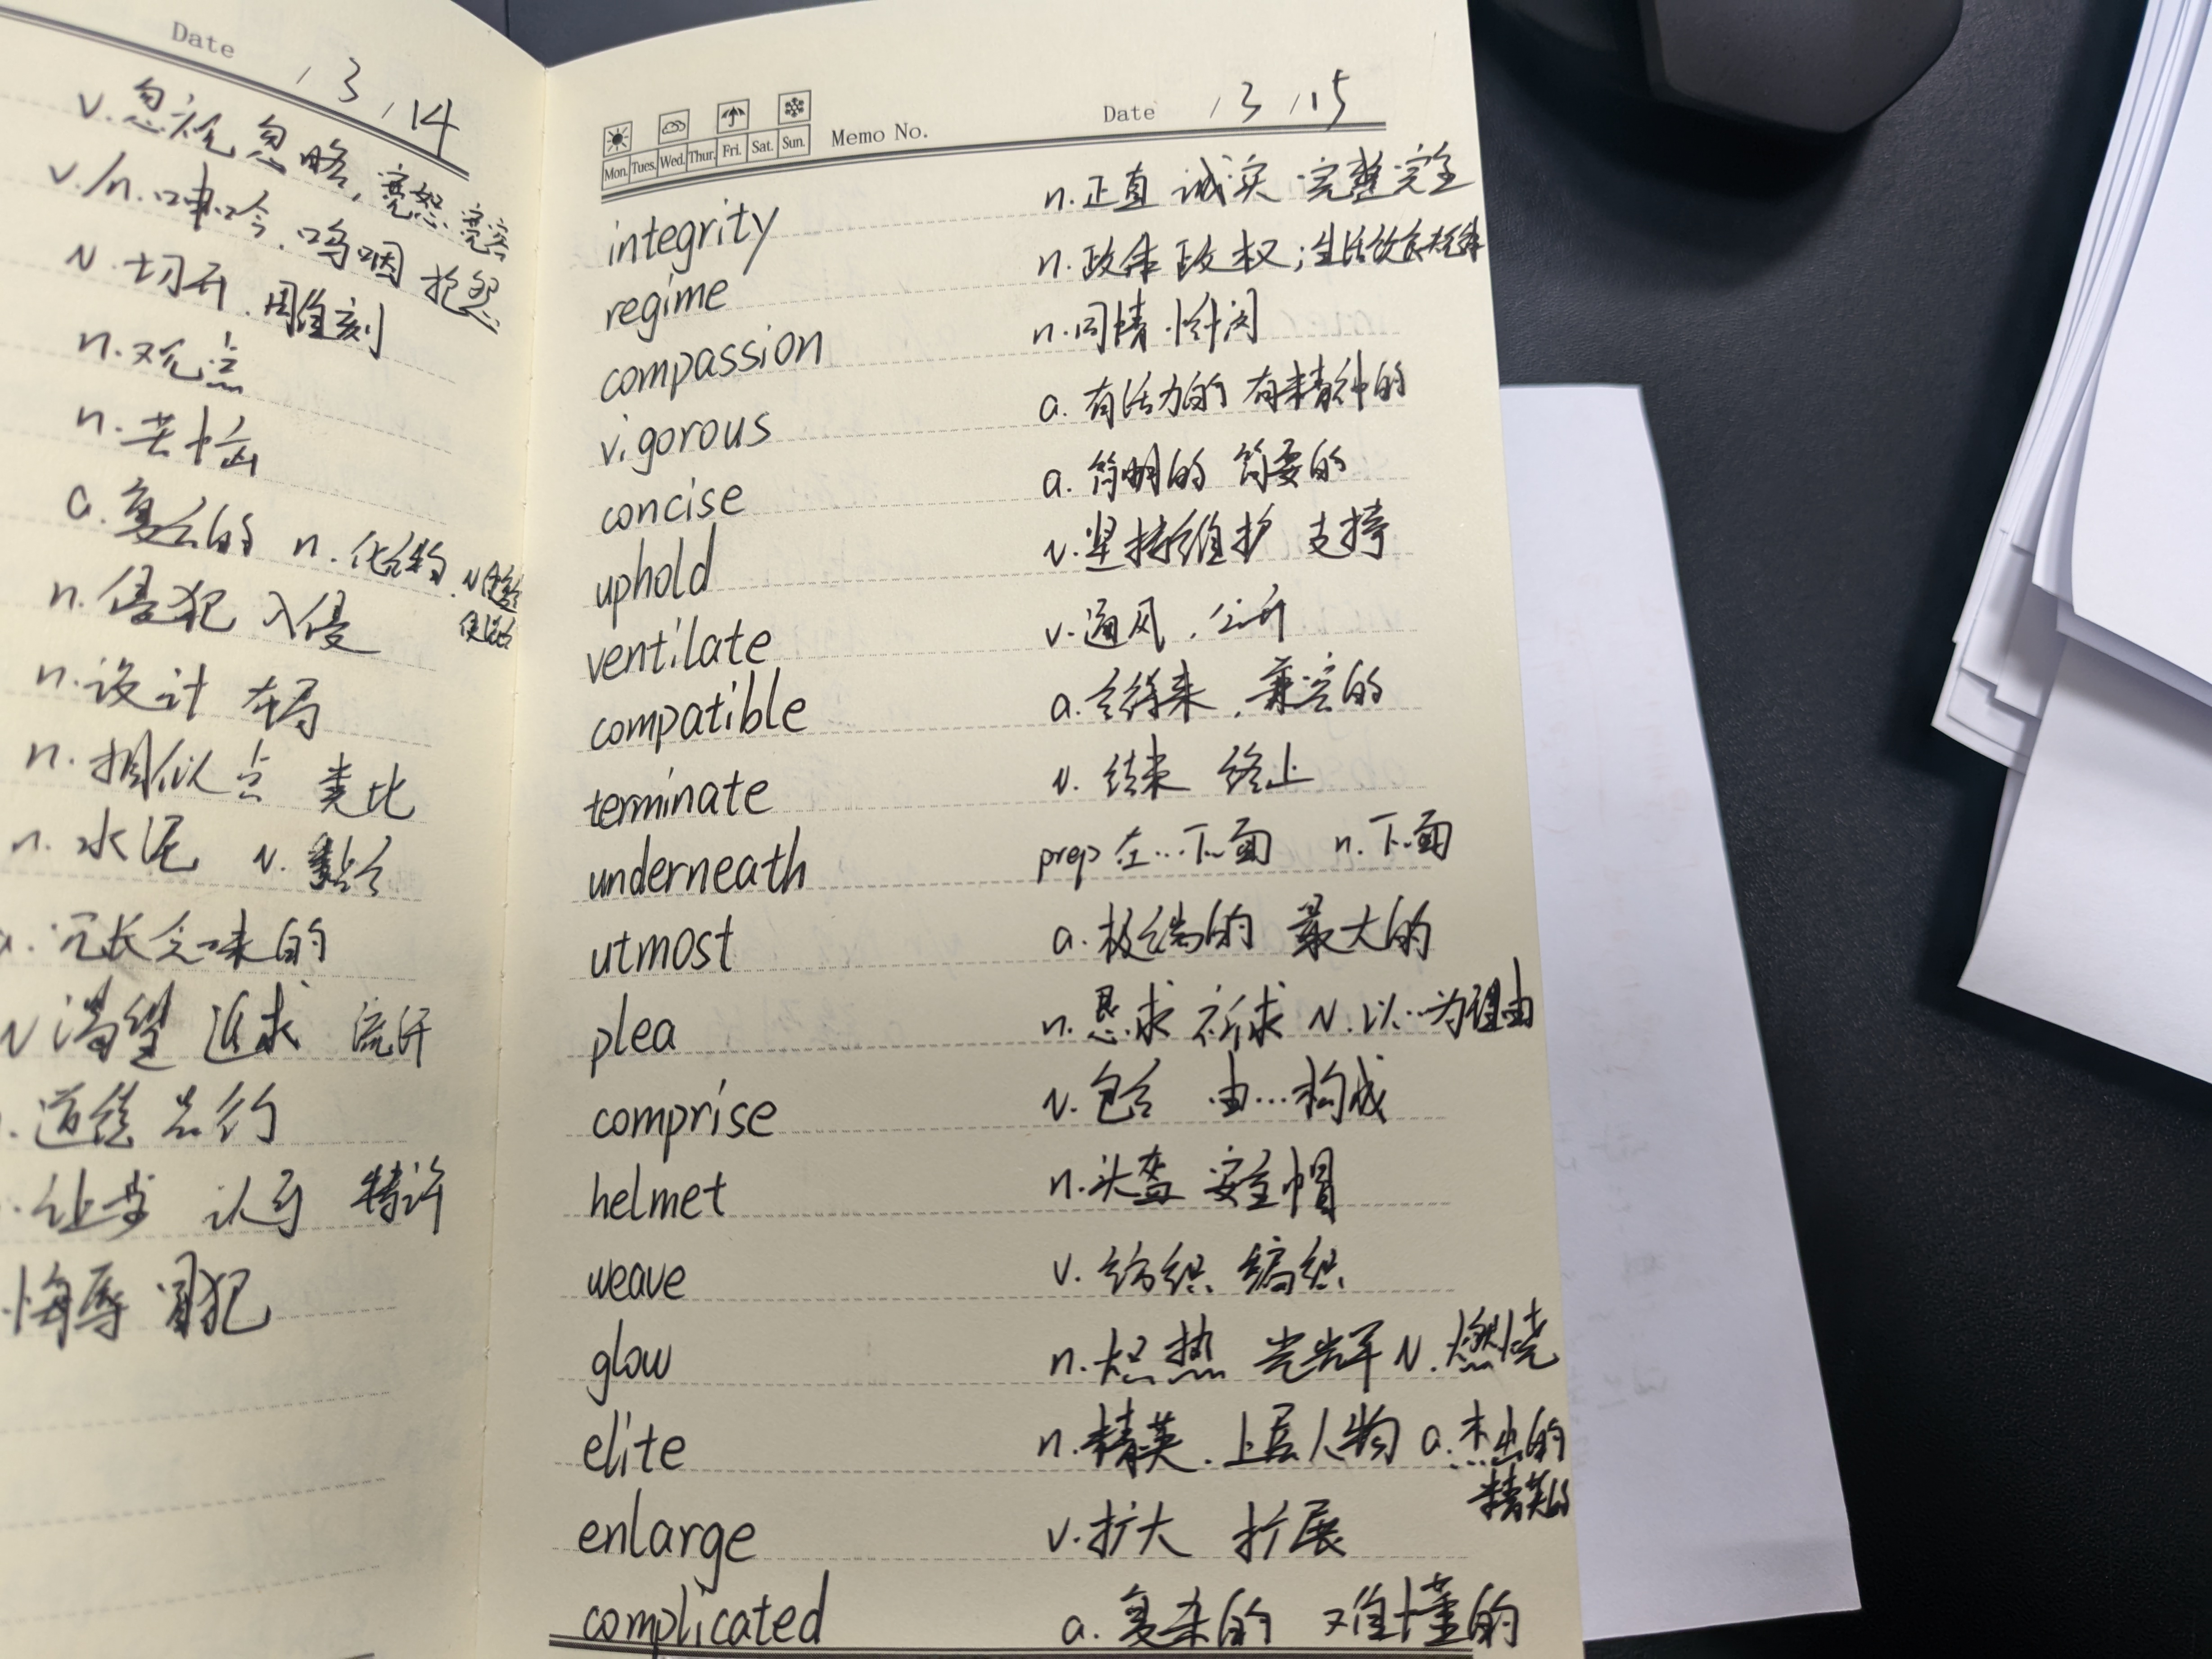 Date / 3 / 14
v. 忽视 忽略, 宽恕 宽容
v./n. 呻吟. 呜咽 抱怨
v. 切开. 雕刻
n. 观点
n. 苦恼
a. 复合的 n. 化合物. v.
n. 侵犯 入侵
n. 设计 布局
n. 相似点 类比
n. 水泥 v. 黏合
a. 冗长乏味的
v 渴望 追求
道德 品行
让步 认可 特许
侮辱 冒犯
Mon. Tues. Wed. Thur. Fri. Sat. Sun. Memo No. Date / 3 / 15
integrity n. 正直 诚实 完整 完全
regime n. 政体 政权; 生活饮食规律
compassion n. 同情 怜闵
vigorous a. 有活力的 有精神的
concise a. 简明的 简要的
uphold v. 坚持维护 支持
ventilate v. 通风. 公开
compatible a. 合得来. 兼容的
terminate v. 结束 终止
underneath prep 在...下面 n. 下面
utmost a. 极端的 最大的
plea n. 恳求 祈求 v. 以...为理由
comprise v. 包含 由...构成
helmet n. 头盔 安全帽
weave v. 纺织 编织
glow n. 炽热 光辉 v. 燃烧
elite n. 精英. 上层人物 a. 杰出的
精英的
enlarge v. 扩大 扩展
complicated a. 复杂的 难懂的